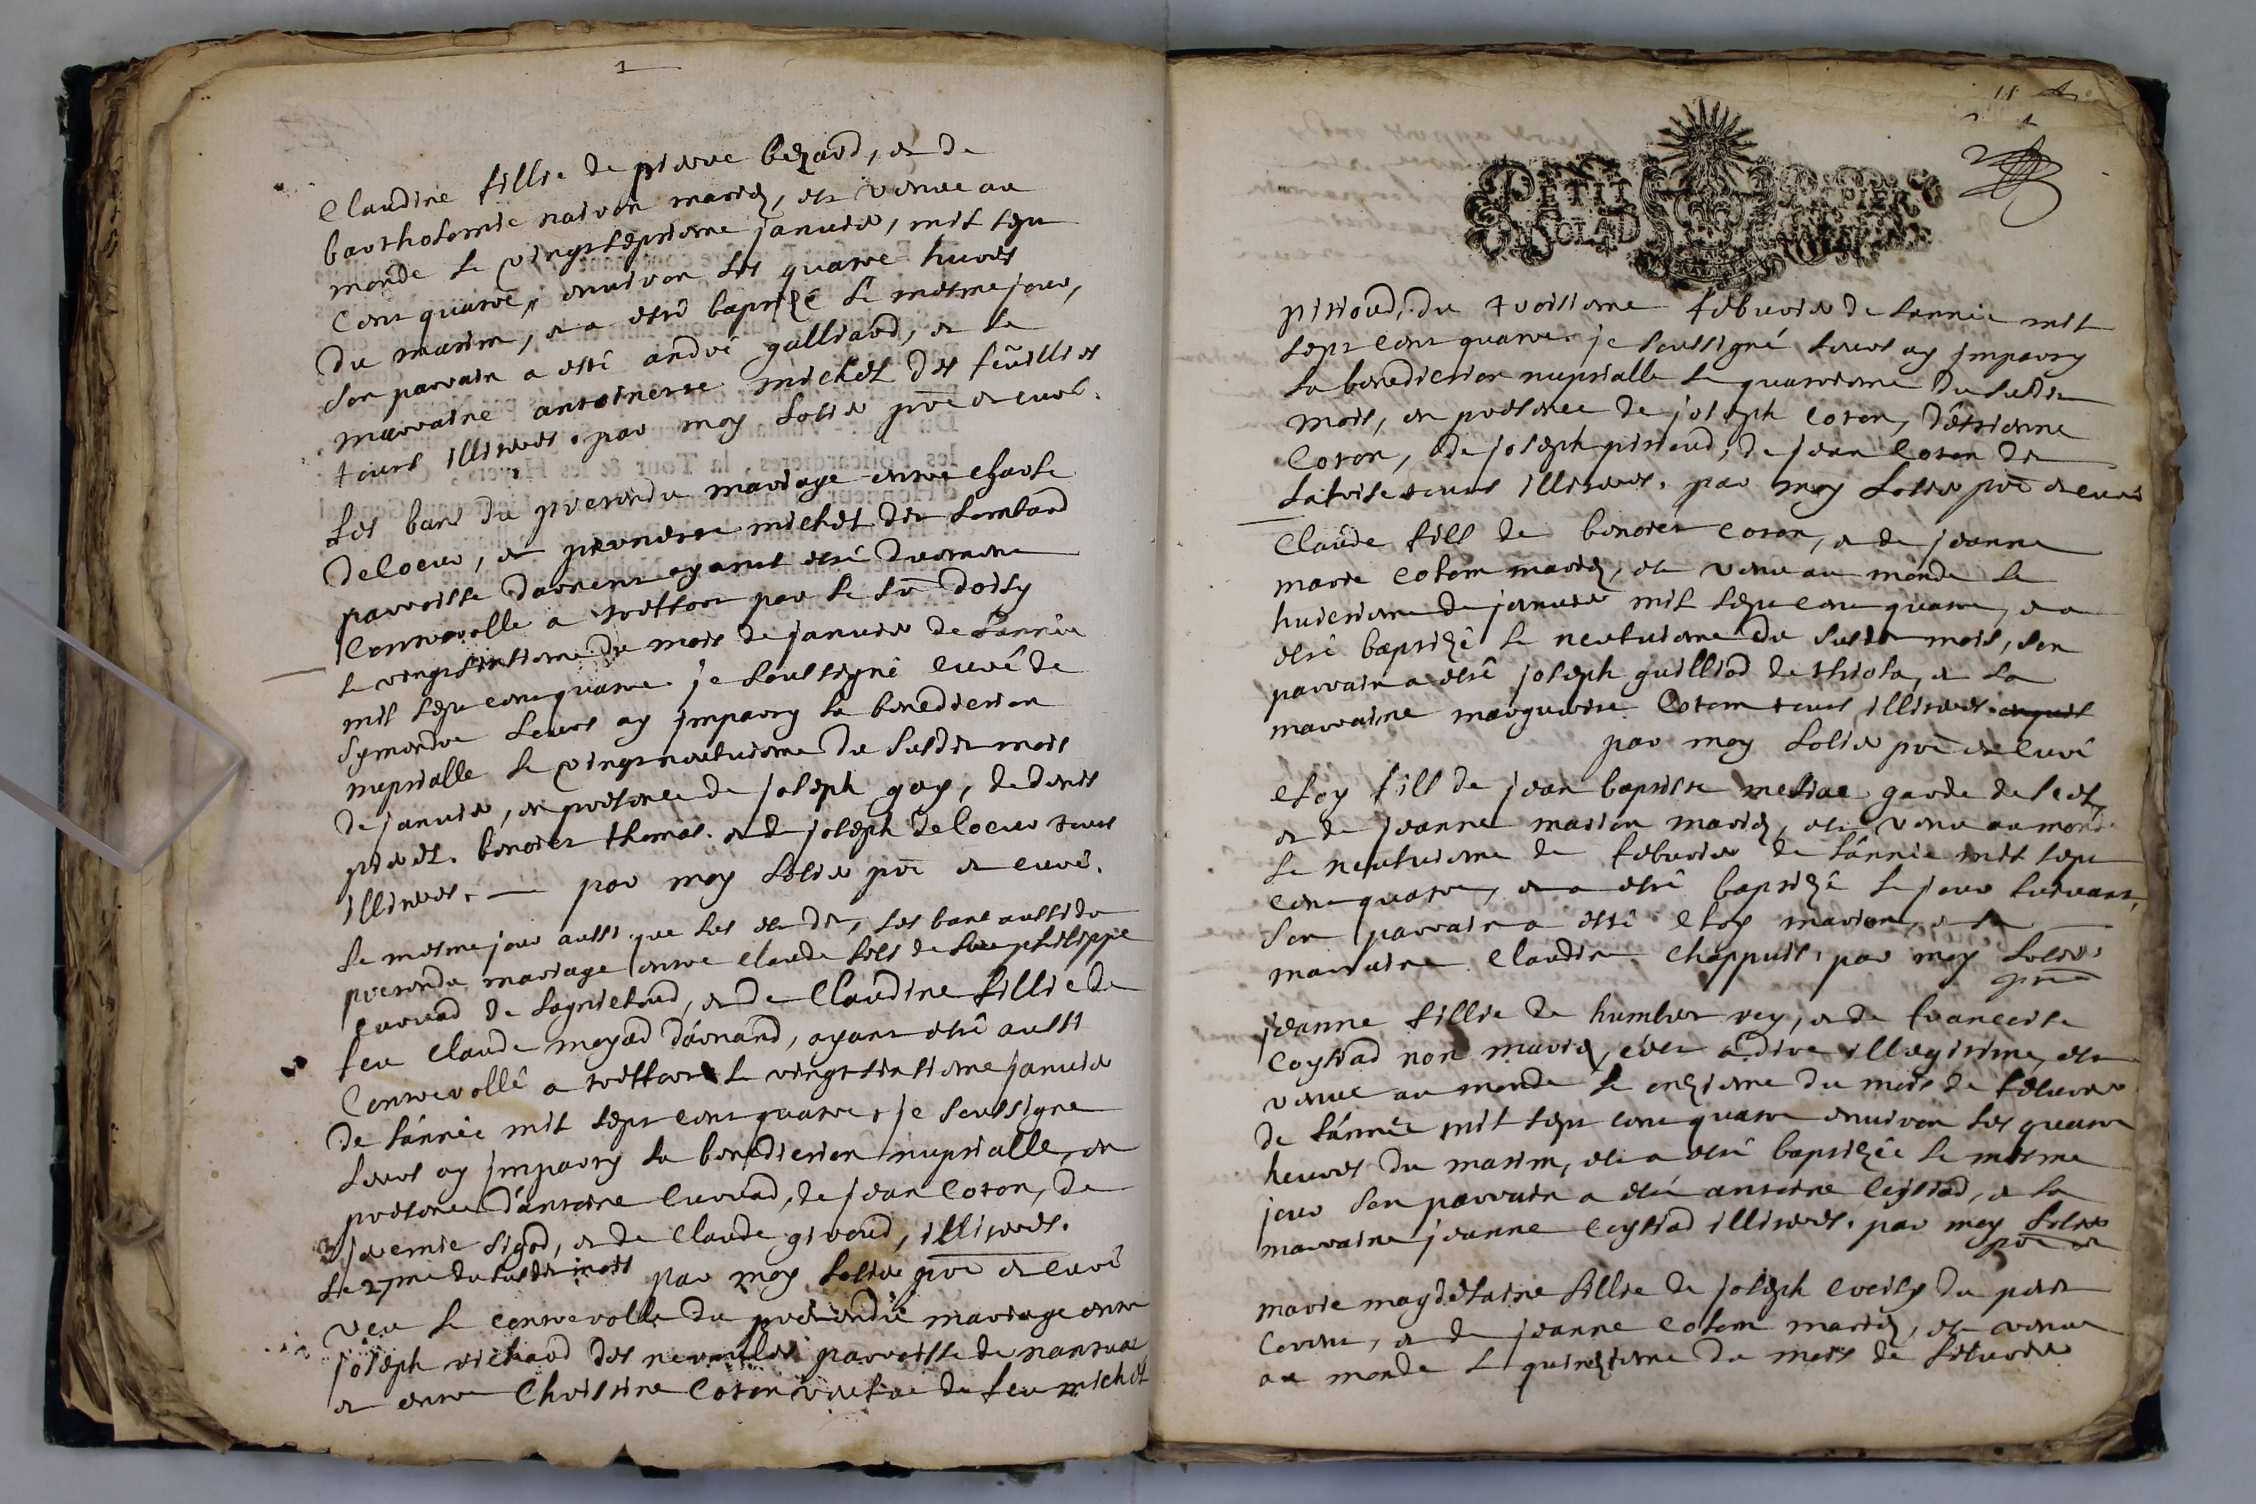 1
Claudine fillie de pierre bezard, et de
bartholomie naivon mariez, est venue au
monde le vingt septieme janvier, mil sept
cent quatre, environ les quatre heures
du matin, et a esté baptizé le mesme jour,
son parrain a esté andré galliard, et la
marraine antoinette michet des feüillies
tous illiteres. par moy Solier pre et curé.
Les bans du pretendu mariage entre charle
delocur, et pernette michet dit Lombard
parroisse dartent ayants esté duement
controollé a treffort par le Sr doisy
le vingt sixtieme du mois de janvier de l'année
mil sept cent quatre. je soussigné curé de
Symandre leurs ay imparty la benediction
nuptialle le vingt neufvieme du susdit mois
de janvier, en presence de joseph goy, de denis
benoict thomas. et de joseph delocur tous
illiteres. par moy Solier pre et curé.
Le mesme jour aussi que sus est dit, les bans aussi du
pretendu mariage entre claude fils de feu philippe
curvad de et de Claudine fillie de
feu claude moyad d'arnand, ayant esté aussi
controollé a treffort le vingt sixtieme janvier
de l'année mil sept cent quatre, je soussigne
leurs ay imparty la benediction nuptialle, en
presence d'antoine curvad, de jean Coton, de
jeremie sigod, et de claude giroud, illiteres.
Le 27me du susdit mois par moy Solier pre et curé
Veu le controolle du pretendu mariage entre
joseph richard des neyrolles parroisse de nantua
et entre Christine Coton vuefve de feu michel
11
PETIT PAPIER
pittioud, du troisieme febvrier de l'année mil
sept cent quatre. je soussigné leurs ay imparty
la benediction nuptialle le quatrieme du susdit
mois, en presence de joseph Coton, d'estienne
Coton, de joseph pittioud, de jean Coton dit
tous illiteres. par moy Solier pre et curé
Claude fils de benoict coton, et de jeanne
marie cotom mariez, est venu au monde le
huictieme de janvier mil sept cent quatre, et a
esté baptizé le neufvieme du susdit mois, son
parrain a esté joseph guilliod de thiola, et la
marraine marguerite Cotom tous illiteres.
par moy Solier pre et curé
eloy fils de jean baptiste garde de
et de jeanne marion mariez, est venu au monde
le neufvieme de febvrier de l'année mil sept
cent quatre, et a esté baptizé le jour suivant,
son parrain a esté eloy marion, et sa
marraine Claudine chappuis, par moy Solier
pre
jeanne fillie de humbert rey, et de francoise
coyssiad non mariez, c'est a dire illegitime, est
venue au monde le onzieme du mois de febvrier
de l'année mil sept cent quatre environ les quatre
heures du matin, et a esté baptizée le mesme
jour son parrain a esté antoine coyssiad, et la
marraine jeanne coyssiad illiteres. par moy Solier
pre et
marie magdelaine fillie de joseph du petit
et de jeanne cotom mariez, est venue
au monde le quinzieme du mois de febvrier